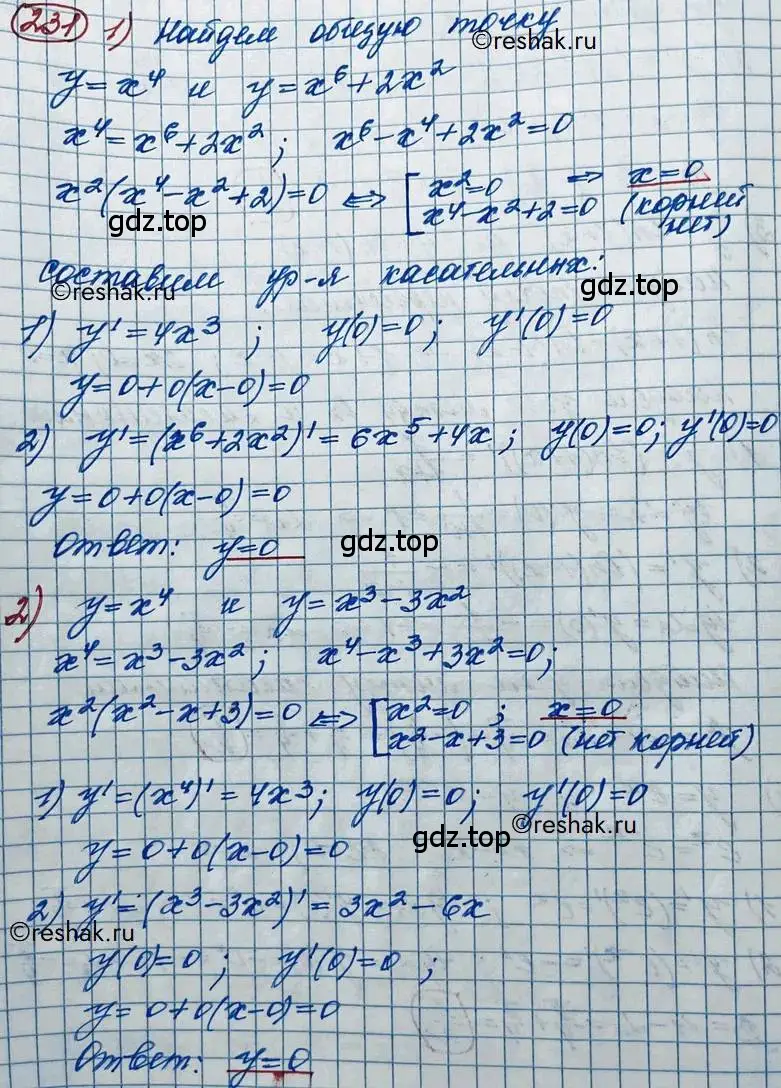 231 1) Найдем общую точку
©reshak.ru
y=x⁴ и y=x⁶+2x²
x⁴=x⁶+2x²; x⁶-x⁴+2x²=0
x²(x⁴-x²+2)=0 ⟺ [x²=0 ⇒ x=0
x⁴-x²+2=0 (корней нет)
gdz.top
составим ур-я касательных:
©reshak.ru gdz.top
1) y'=4x³; y(0)=0; y'(0)=0
y=0+0(x-0)=0
2) y'=(x⁶+2x²)'=6x⁵+4x; y(0)=0; y'(0)=0
y=0+0(x-0)=0
Ответ: y=0 gdz.top
2) y=x⁴ и y=x³-3x²
x⁴=x³-3x²; x⁴-x³+3x²=0;
x²(x²-x+3)=0 ⟺ [x²=0; x=0
x²-x+3=0 (нет корней)
1) y'=(x⁴)'=4x³; y(0)=0; y'(0)=0
©reshak.ru
y=0+0(x-0)=0 gdz.top
2) y'=(x³-3x²)'=3x²-6x
©reshak.ru
y(0)=0; y'(0)=0;
y=0+0(x-0)=0
Ответ: y=0